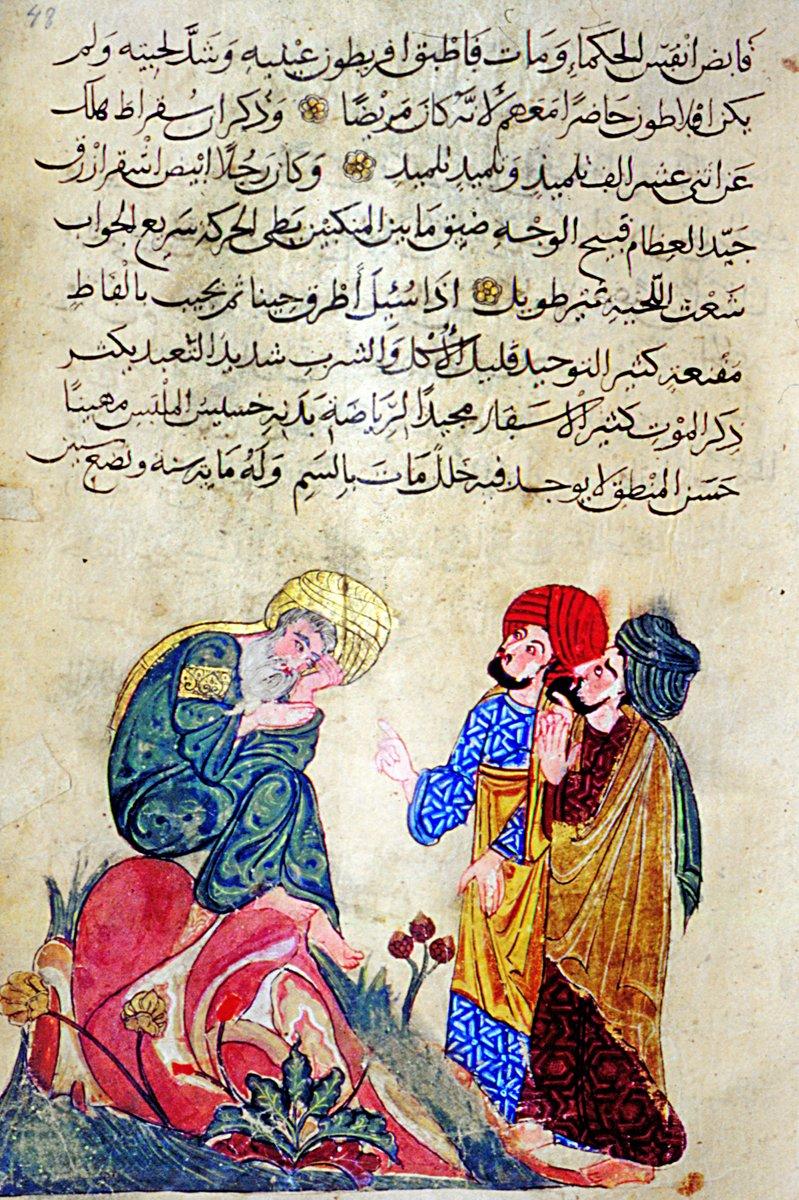 48
قابض انفس الحكماء ومات فاطبق افريطون عينيه وشدَّ لحيته ولم
يكن افلاطون حاضرًا معهم لانَّه كان مريضًا وذكر ان سقراط هلك
عن اثنى عشر الف تلميذ وتلميذ تلميذ وكان رجُلًا ابيض اشقر ازرق
جيّد العظام قبيح الوجه ضيق ما بين المنكبين بطى الحركة سريع الجواب
شعث اللّحية غير طويل اذا سُئِلَ أطرق حينا ثم يجيب بالفاظٍ
مقنعة كثير التوحيد قليل الأكل والشرب شديد التعبد يكثر
ذكر الموت كثير الاسفار مجيدًا لرياضة بدنه خسيس الملبس مهيبًا
حسن المنطق لا يوجد فيه خلل مات بالسم وله ماية سنة وبضع سنين